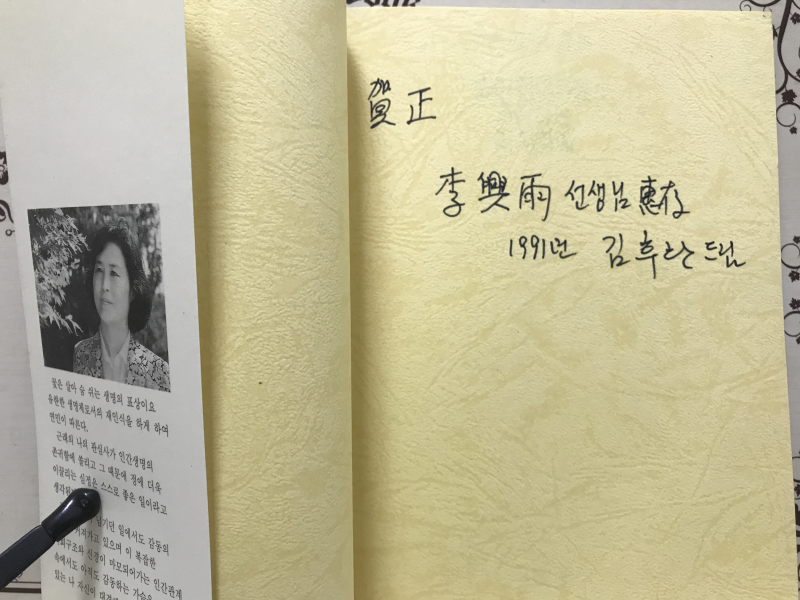 빛은 살아 숨 쉬는 생명의 표상이요
유한한 생명체로서의 재인식을 하게 하여
연민이 따른다.
근래의 나의 관심사가 인간생명의
존귀함에 쏠리고 그 때문에 정에 더욱
이끌리는 심정은 스스로 좋은 일이라고
생각
남기던 일에서도 감동의
가고 있으며 이 복잡한
구조와 신경이 마모되어가는 인간관계
속에서도 아직도 감동하는 가슴을
있는 나 자신이
賀正
李興雨 선생님 惠存
1991년 김후란 드림